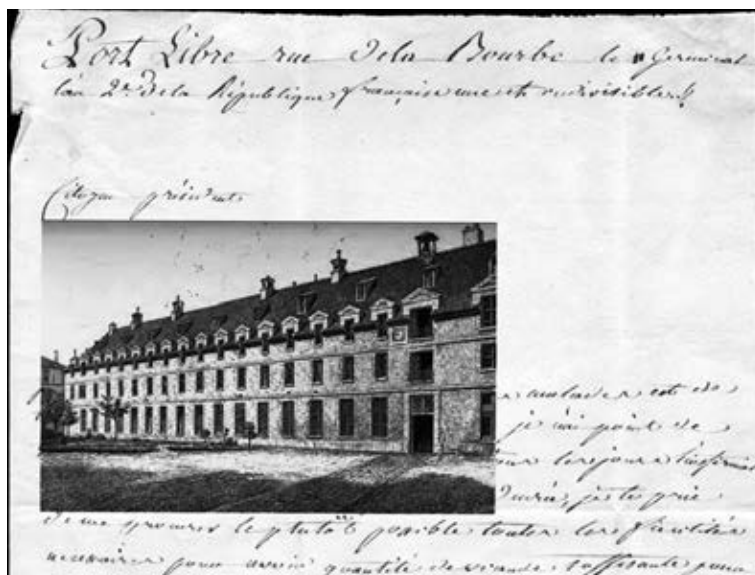 Port Libre rue dela Bourbe le Germinal
lan 2e. dela République française une et indivisible
Citoyen président
malades est de
je n'ai point de
tous les jours a linfirm
durée, je te prie
de me procurer le plutôt possible toutes les facilités
necessaires pour avoir quantité de viande suffisante pour